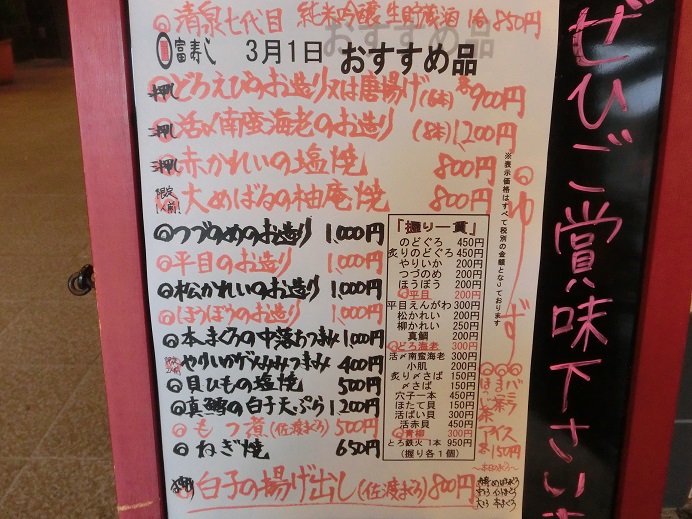 ◎清泉七代目 純米吟醸生貯蔵酒 1合 850円
富寿し 3月1日 おすすめ品
押し どろえびのお造り又は唐揚げ(6本) 各900円
押し 活〆南蛮海老のお造り (8本) 1,200円
押し 赤かれいの塩焼 800円
限定1人前! 大めばるの柚庵焼 800円
◎つづのめのお造り 1,000円
◎平目のお造り 1,000円
◎松かれいのお造り 1,000円
◎ほうぼうのお造り 1,000円
◎本まぐろの中落ちつまみ 1,000円
やりいかゲソみみつまみ 400円
◎貝ひもの塩焼 500円
◎真鱈の白子天ぷら 1,200円
◎もつ煮(佐渡まぐろ) 500円
◎ねぎ焼 650円
白子の揚げ出し(佐渡まぐろ) 800円
「握り一貫」
のどぐろ 450円
炙りのどぐろ 450円
やりいか 200円
つづのめ 200円
ほうぼう 200円
◎平目 200円
平目えんがわ 300円
松かれい 200円
柳かれい 250円
真鯛 200円
◎どろ海老 300円
活〆南蛮海老 300円
小肌 200円
炙り〆さば 150円
〆さば 150円
穴子一本 450円
ほたて貝 150円
活ばい貝 300円
活赤貝 450円
◎青柳 300円
とろ鉄火 1本 950円
(握り各1個)
※表示価格はすべて税別の金額となっております
◎ゆず
◎バニラ
◎ほうじ茶
アイス
各150円
ぜひご賞味下さいま